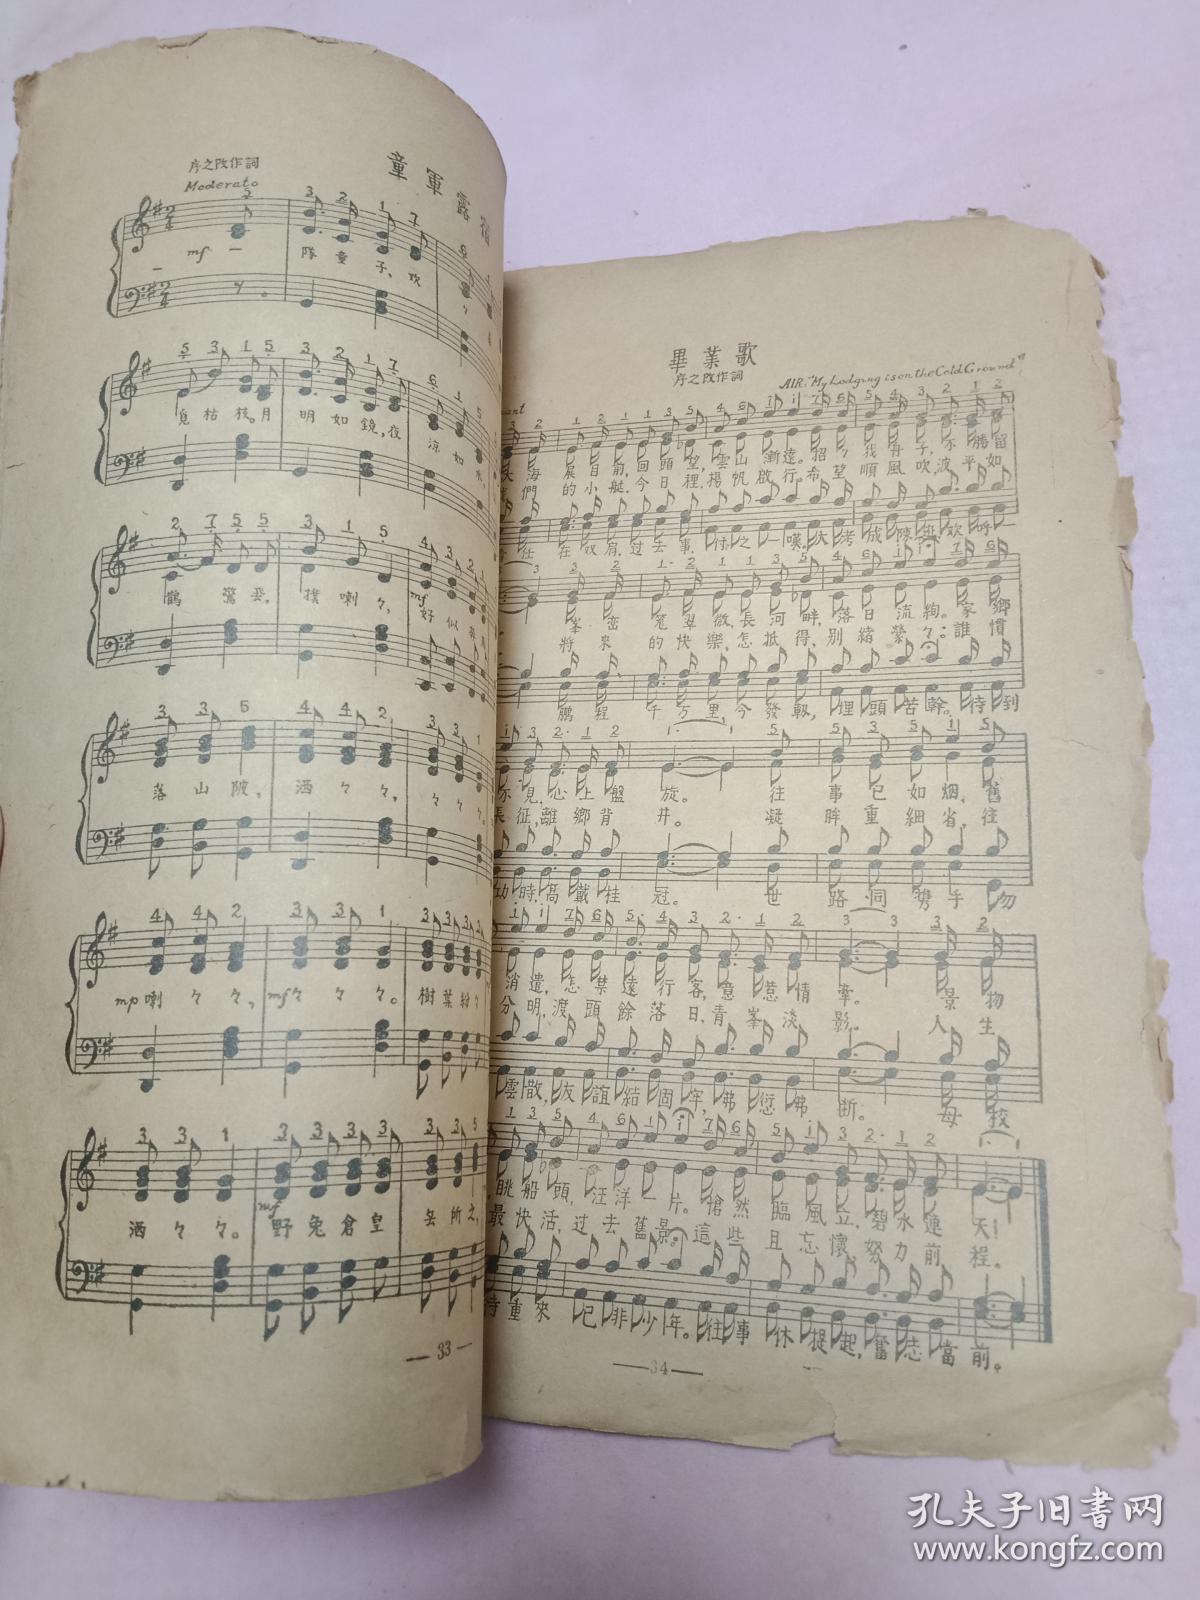 童軍露宿
序之改作詞
Moderato
mf 一 隊童子，吹
覓枯枝。月明如鏡，夜涼如水，
鵲驚飛，撲喇々，mf 好似
落山陂，洒々々，々々々。
mp 喇々々，mf 々々々。樹葉紛々
洒々々。mf 野兔倉皇 无所之，
— 33 —
畢業歌
序之改作詞
AIR: "My Lodging is on the Cold Ground"
海展目前，回頭望，雲山漸遠。招々我舟子，亦勝留
們的小艇，今日裡，揚帆啟行。希望順風吹，波平如
仕在双肩，过去事，付之一嘆。大考成陳迹，欢呼一
峯巒蒼翠微，長河畔，落日流絢。家鄉
將來的快樂，怎抵得，別緒縈々：誰慣
鵬程千万里今發軔，埋頭苦幹。待到
不見，心上盤旋。往事已如烟，舊
長征，離鄉背井。凝眸重細省，往
功時，高戴桂冠。世路同携手，勿
消遣，怎禁遠行客，意惹情牽。景物
分明，渡頭餘落日，青峯淡影。人生
雲散，友誼結固牢，弗愆弗斷。母校
眺船頭，汪洋一片。愴然臨風立，碧水連天！
最快活，过去舊景。這些且忘懷，努力前程。
待重來已非少年。往事休提起，奮志當前。
— 34 —
孔夫子旧書网
www.kongfz.com